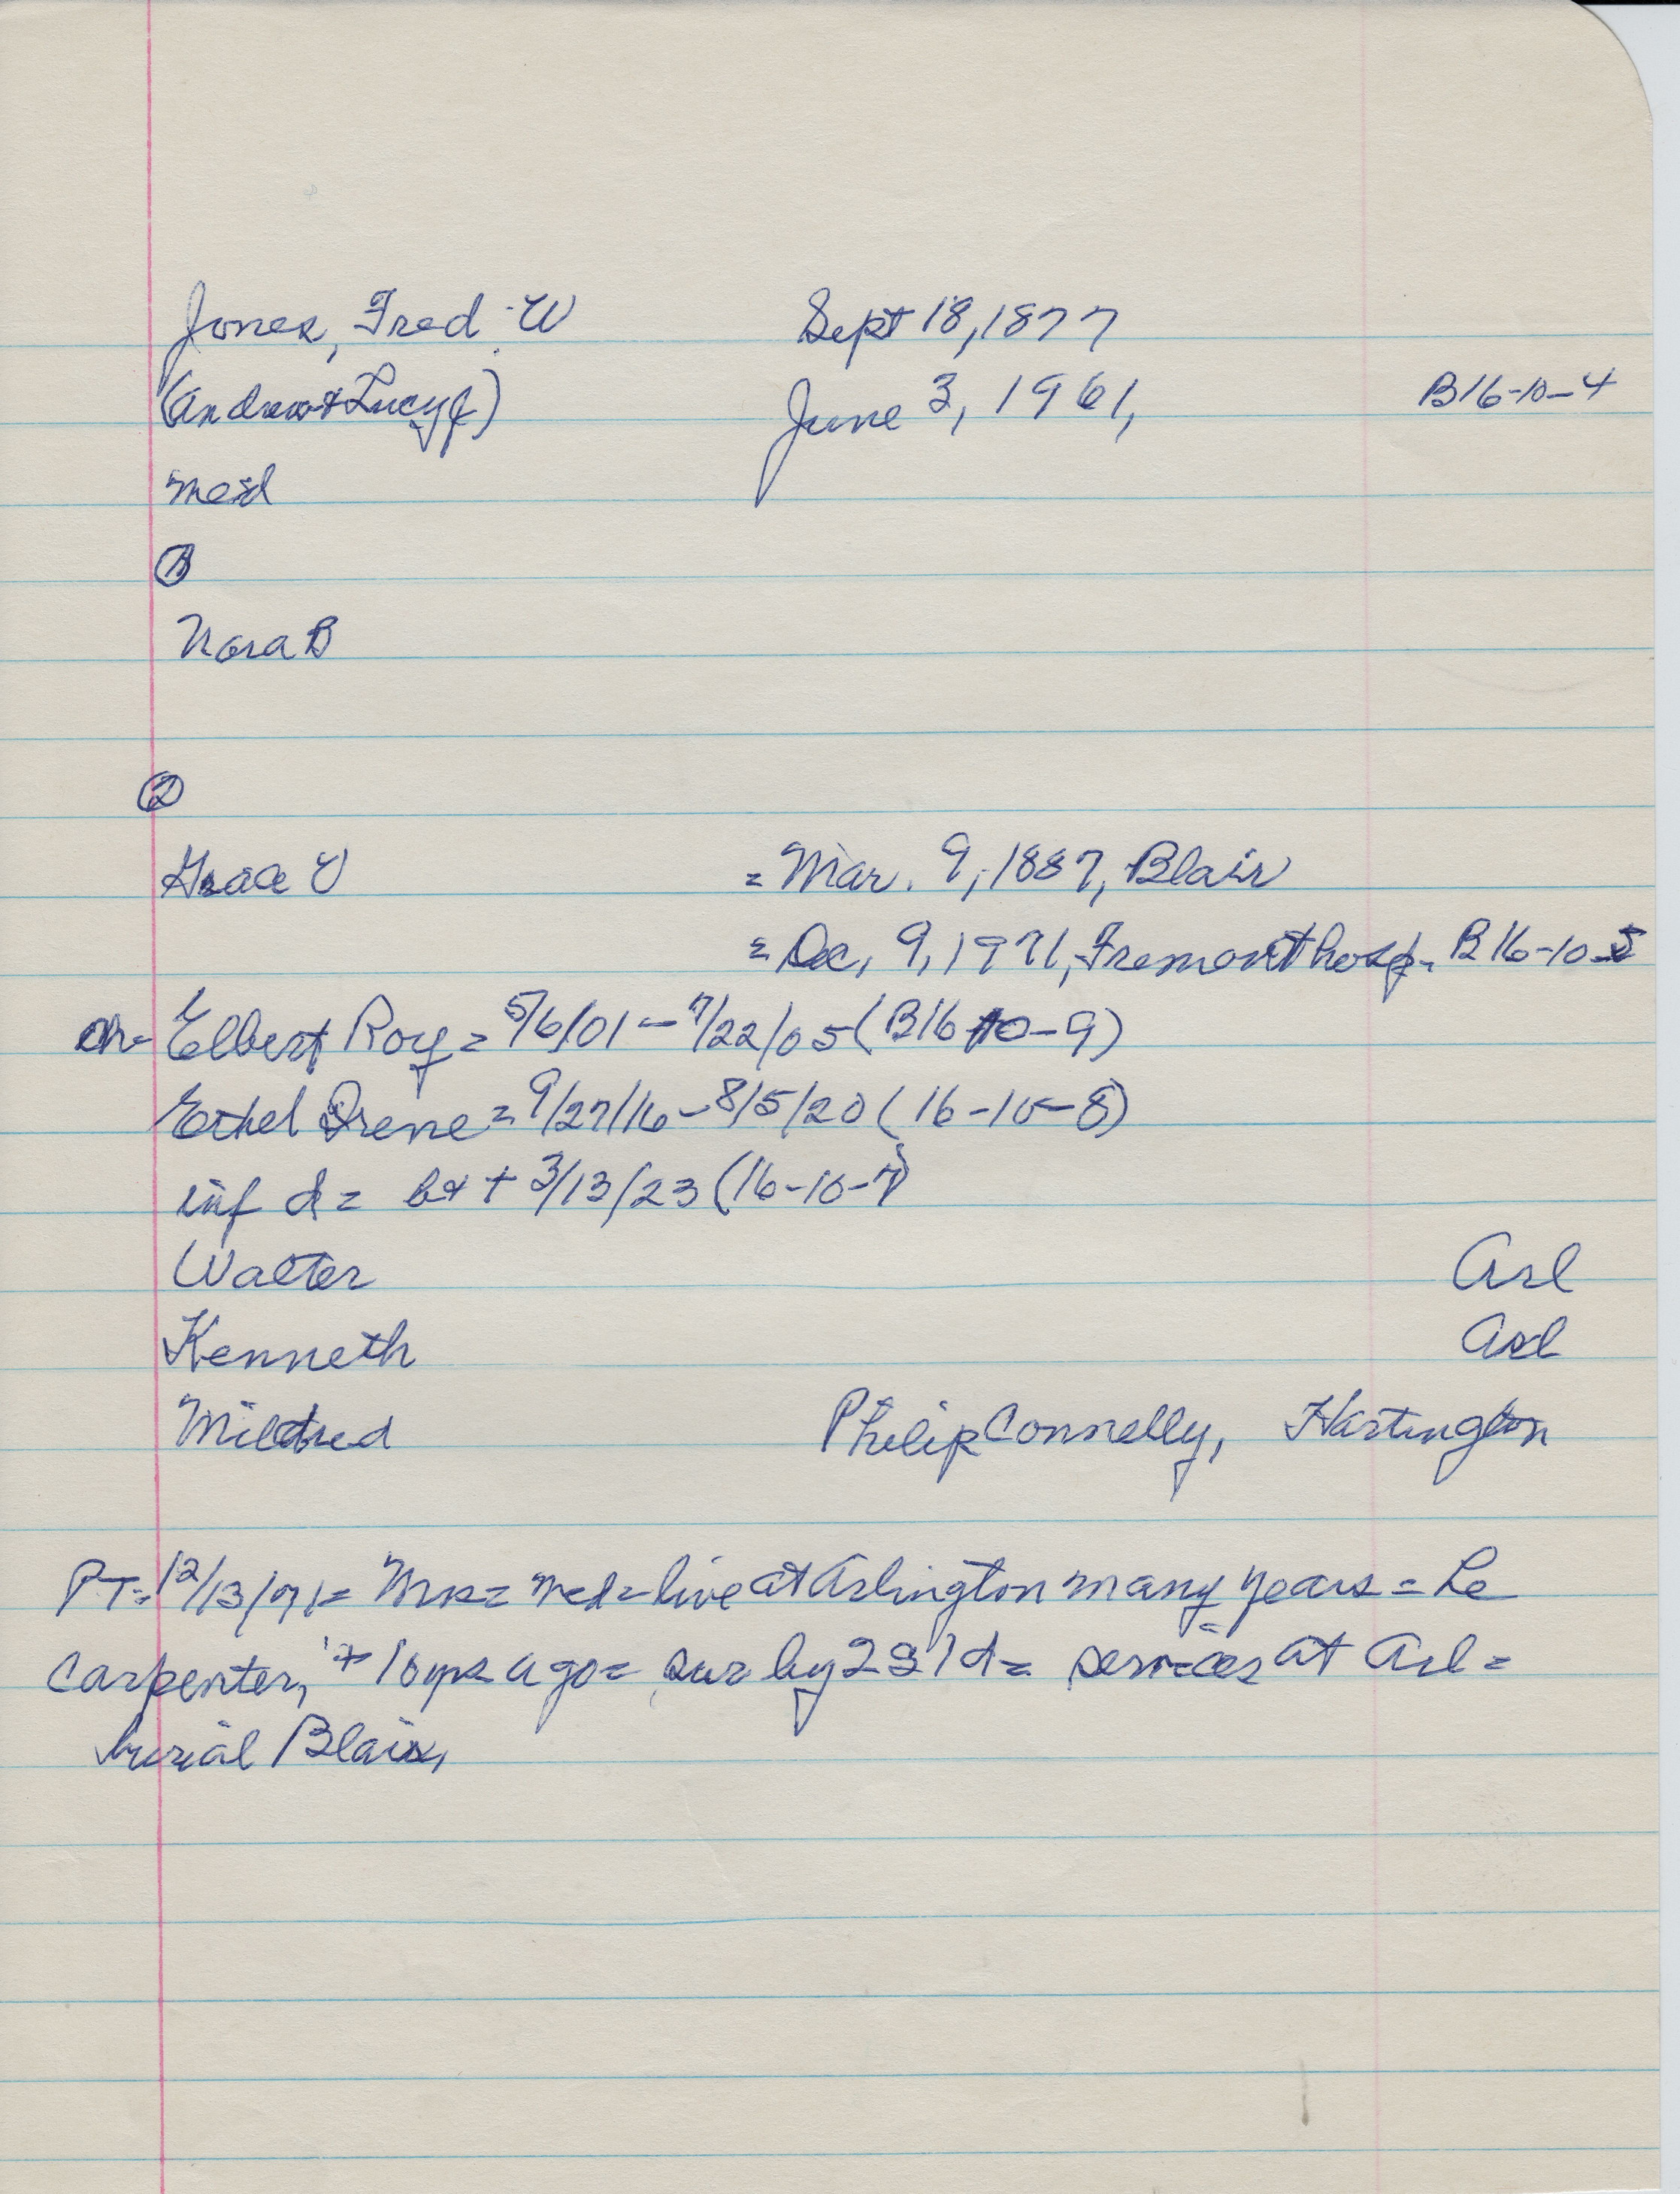 Jones, Fred W Sept 18, 1877
(Andrew + Lucy J) June 3, 1961, B16-10-4
med
①
Nora B
②
Grace V = Mar. 9, 1887, Blair
= Dec, 9, 1971, Fremont hosp. B16-10-5
ch- Elbert Roy = 5/6/01 - 7/22/05 (B16 10-9)
Ethel Irene = 9/27/16 - 8/5/20 (16-10-8)
inf d = b + 3/13/23 (16-10-7)
Walter Arl
Kenneth Arl
Mildred Philip Connelly, Hartington
PT- 12/13/71 = Mrs = med = live at Arlington many years = he
carpenter, + 10 yrs ago = sur by 2 s 1 d = services at Arl =
burial Blair,